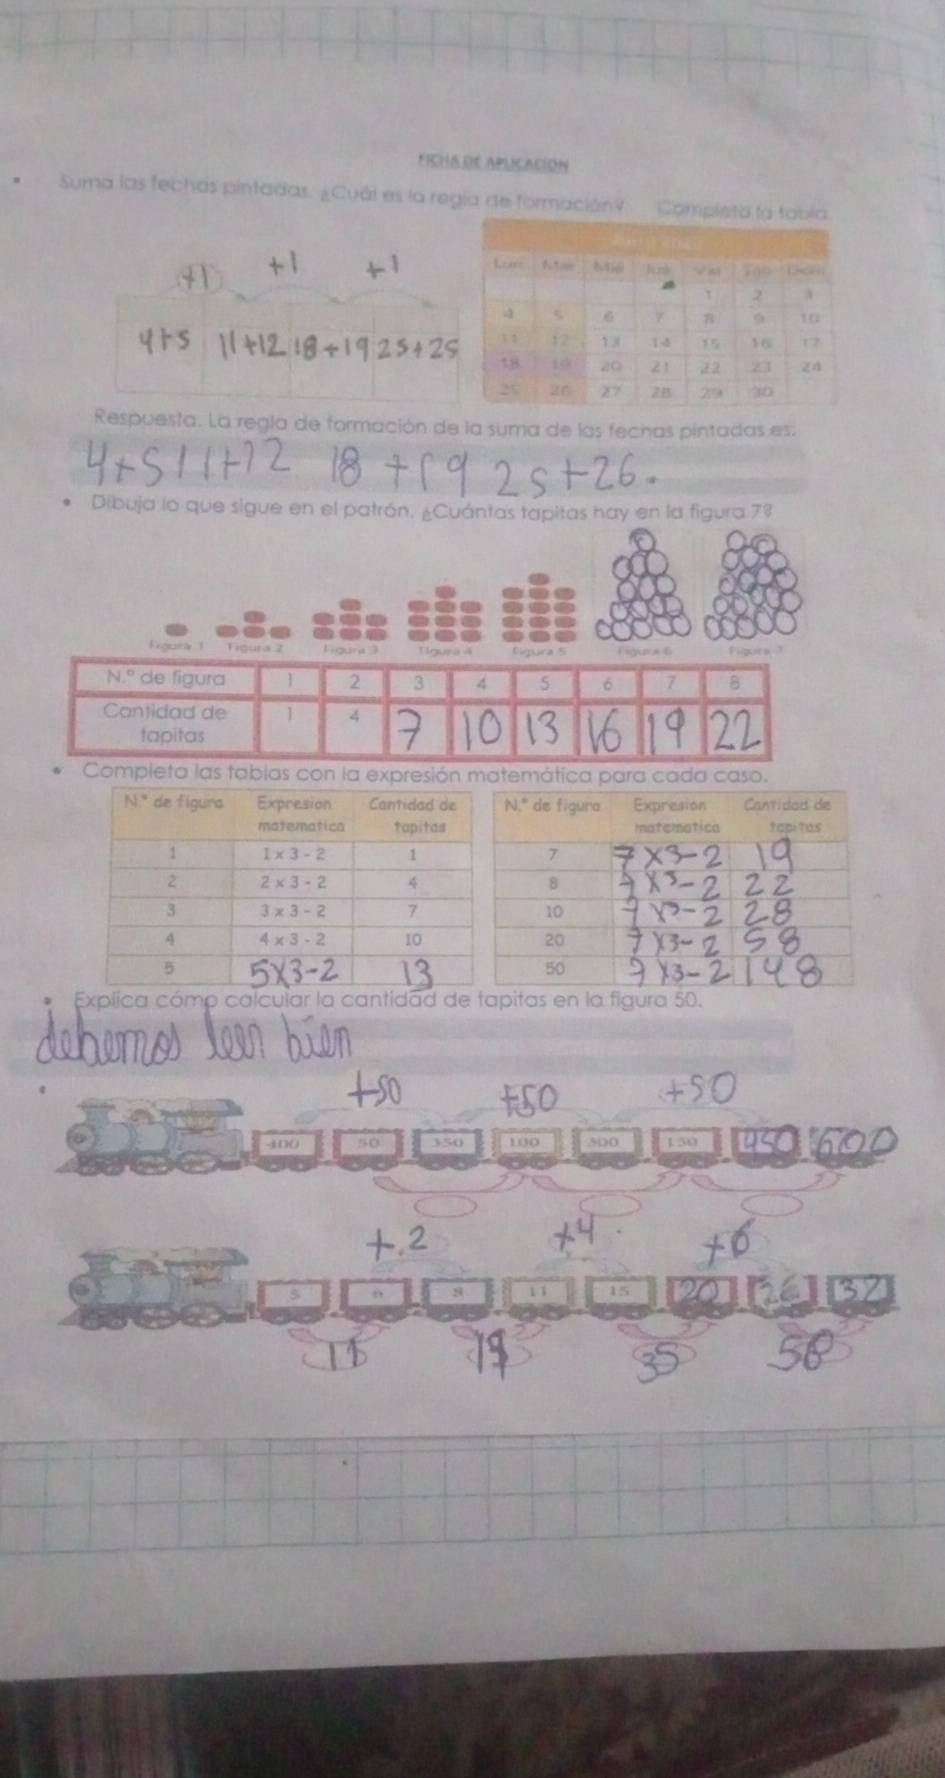 FICHA DE APLICACIÓN
Suma las fechas pintadas. ¿Cuál es la regla de formación? Completa la tabla
+1 +1 +1
Lun Mar Mié Jue Vie Sáb Dom
1 2 3
4 5 6 7 8 9 10
11 12 13 14 15 16 17
18 19 20 21 22 23 24
25 26 27 28 29 30
4+5 11+12 18+19 25+25
Respuesta. La regla de formación de la suma de las fechas pintadas es:
4+5 11+12 18+19 25+26.
Dibuja lo que sigue en el patrón. ¿Cuántas tapitas hay en la figura 7?
Figura 1 Figura 2 Figura 3 Figura 4 Figura 5 Figura 6 Figura 7
N.° de figura 1 2 3 4 5 6 7 8
Cantidad de tapitas 1 4 7 10 13 16 19 22
Completa las tablas con la expresión matemática para cada caso.
N.° de figura Expresion matematica Cantidad de tapitas
1 1 x 3 - 2 1
2 2 x 3 - 2 4
3 3 x 3 - 2 7
4 4 x 3 - 2 10
5 5x3-2 13
N.° de figura Expresion matematica Cantidad de tapitas
7 7x3-2 19
8 7x3-2 22
10 7x3-2 28
20 7x3-2 58
50 7x3-2 148
Explica cómo calcular la cantidad de tapitas en la figura 50.
debemos leer bien
+50 +50 +50
400 50 350 100 300 150 950 600
+.2 +4. +6
5 6 8 11 15 20 26 32
11 19 35 58